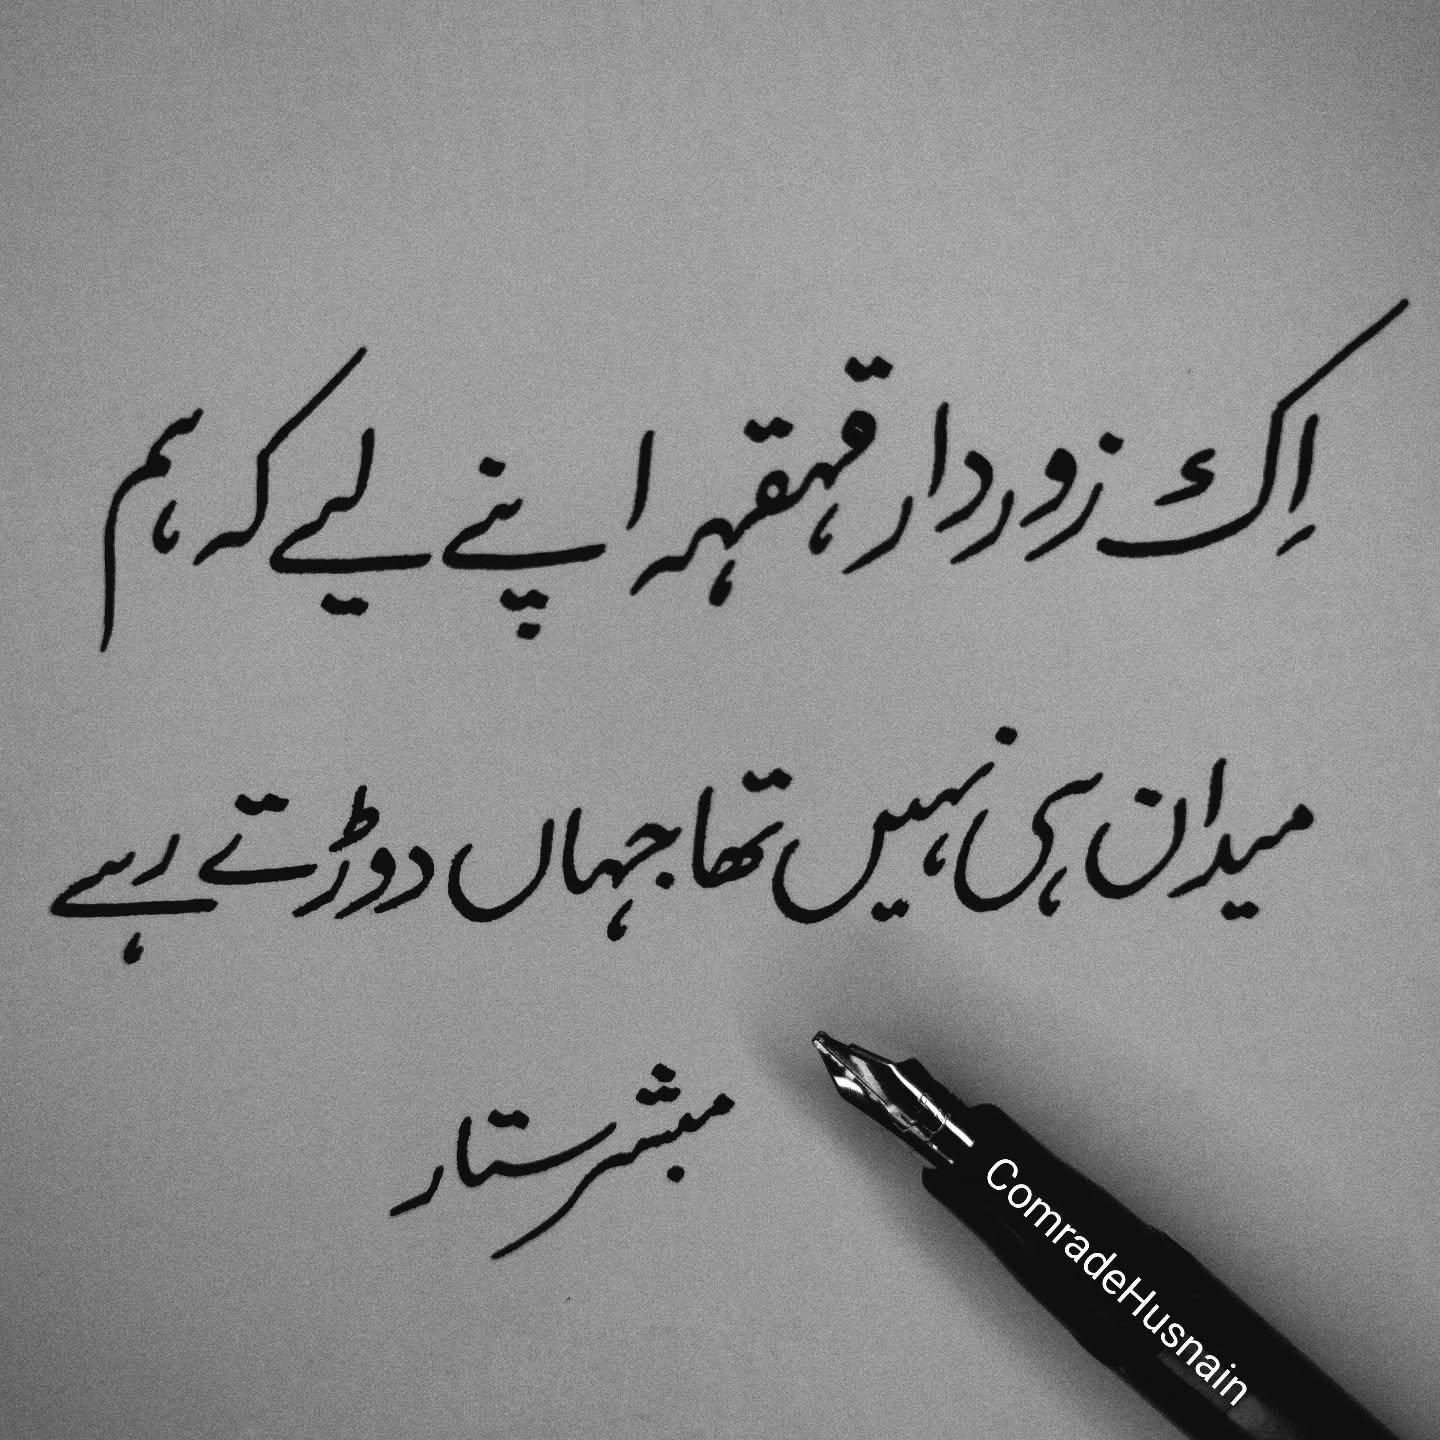 اِک زوردار قہقہہ اپنے لیے کہ ہم
میدان ہی نہیں تھا جہاں دوڑتے رہے
مبشر ستار
ComradeHusnain